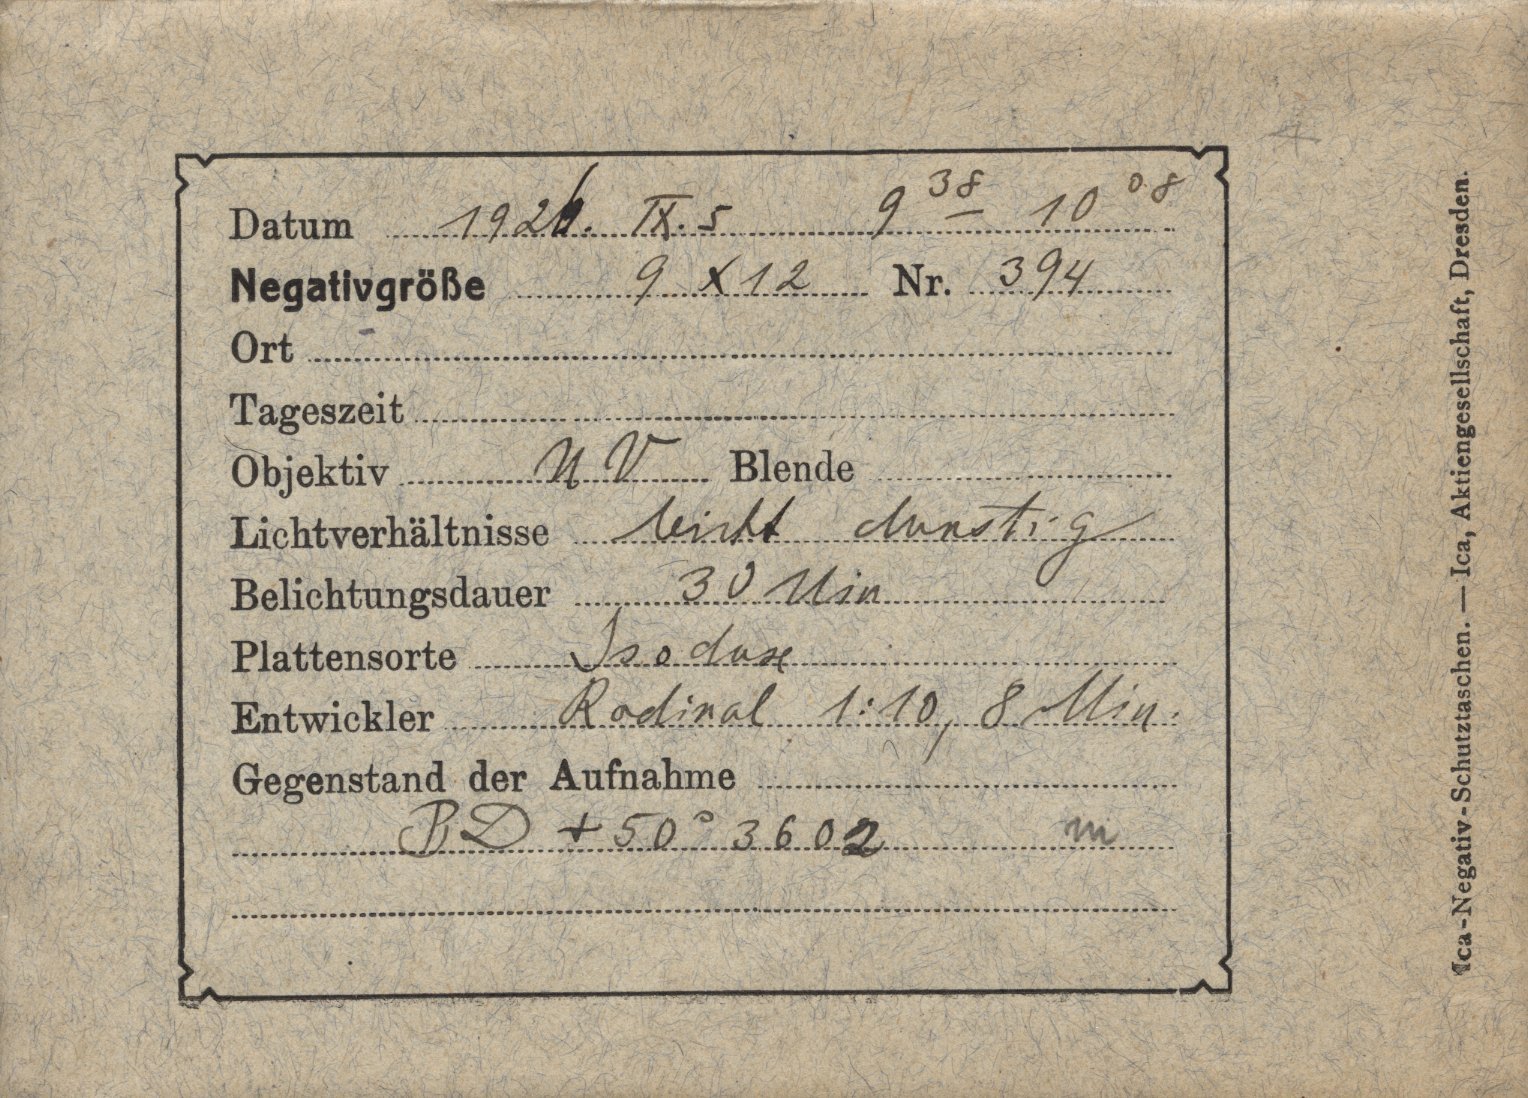 Datum 1926. IX. 5 9 38 – 10 08
Negativgröße 9 x 12 Nr. 394
Ort
Tageszeit
Objektiv UV Blende
Lichtverhältnisse leicht dunstig
Belichtungsdauer 30 Min
Plattensorte Isodux
Entwickler Rodinal 1:10, 8 Min.
Gegenstand der Aufnahme
BD + 50° 3602 m
Ica-Negativ-Schutztaschen. — Ica, Aktiengesellschaft, Dresden.